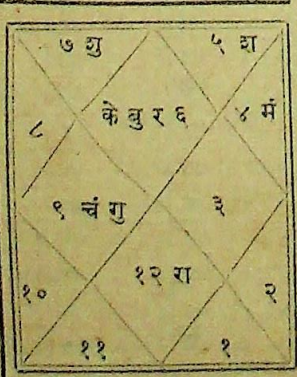 ७ शु ५ श
के बु र ६ ४ मं
८
९ चं गु ३
१२ रा
१० २
११ १